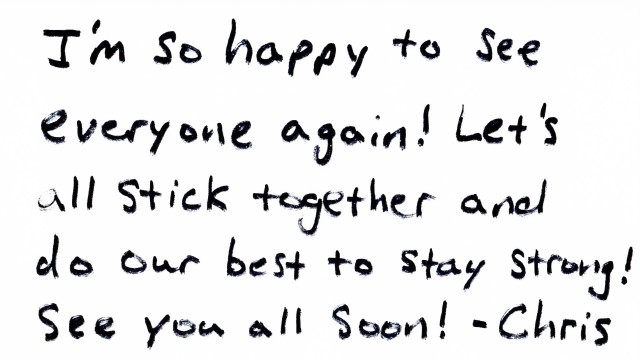 I'm so happy to see
everyone again! Let's
all stick together and
do our best to stay strong!
See you all soon! -Chris